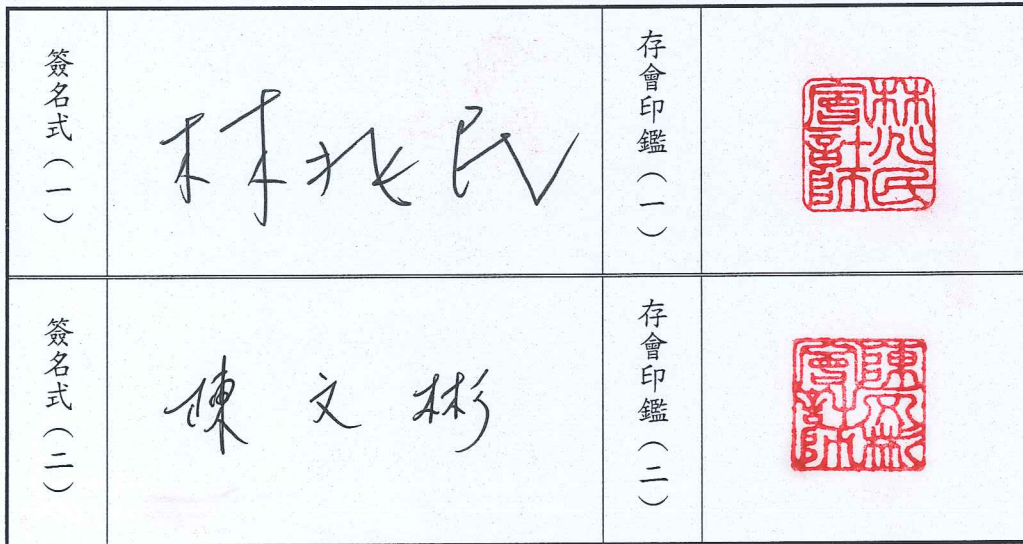 簽名式（一）
林兆民
存會印鑑（一）
林兆民會計師
簽名式（二）
陳文彬
存會印鑑（二）
陳文彬會計師